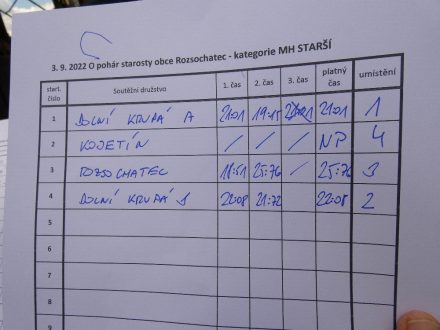 3. 9. 2022 O pohár starosty obce Rozsochatec - kategorie MH STARŠÍ
start. číslo Soutěžní družstvo 1. čas 2. čas 3. čas platný čas umístění
1 DOLNÍ KRUPÁ A 21:01 19:15 21:01 1
2 KOJETÍN / / / NP 4
3 ROZSOCHATEC 18:51 25:76 / 25:76 3
4 DOLNÍ KRUPÁ 22:08 21:72 22:08 2
5
6
7
8
9